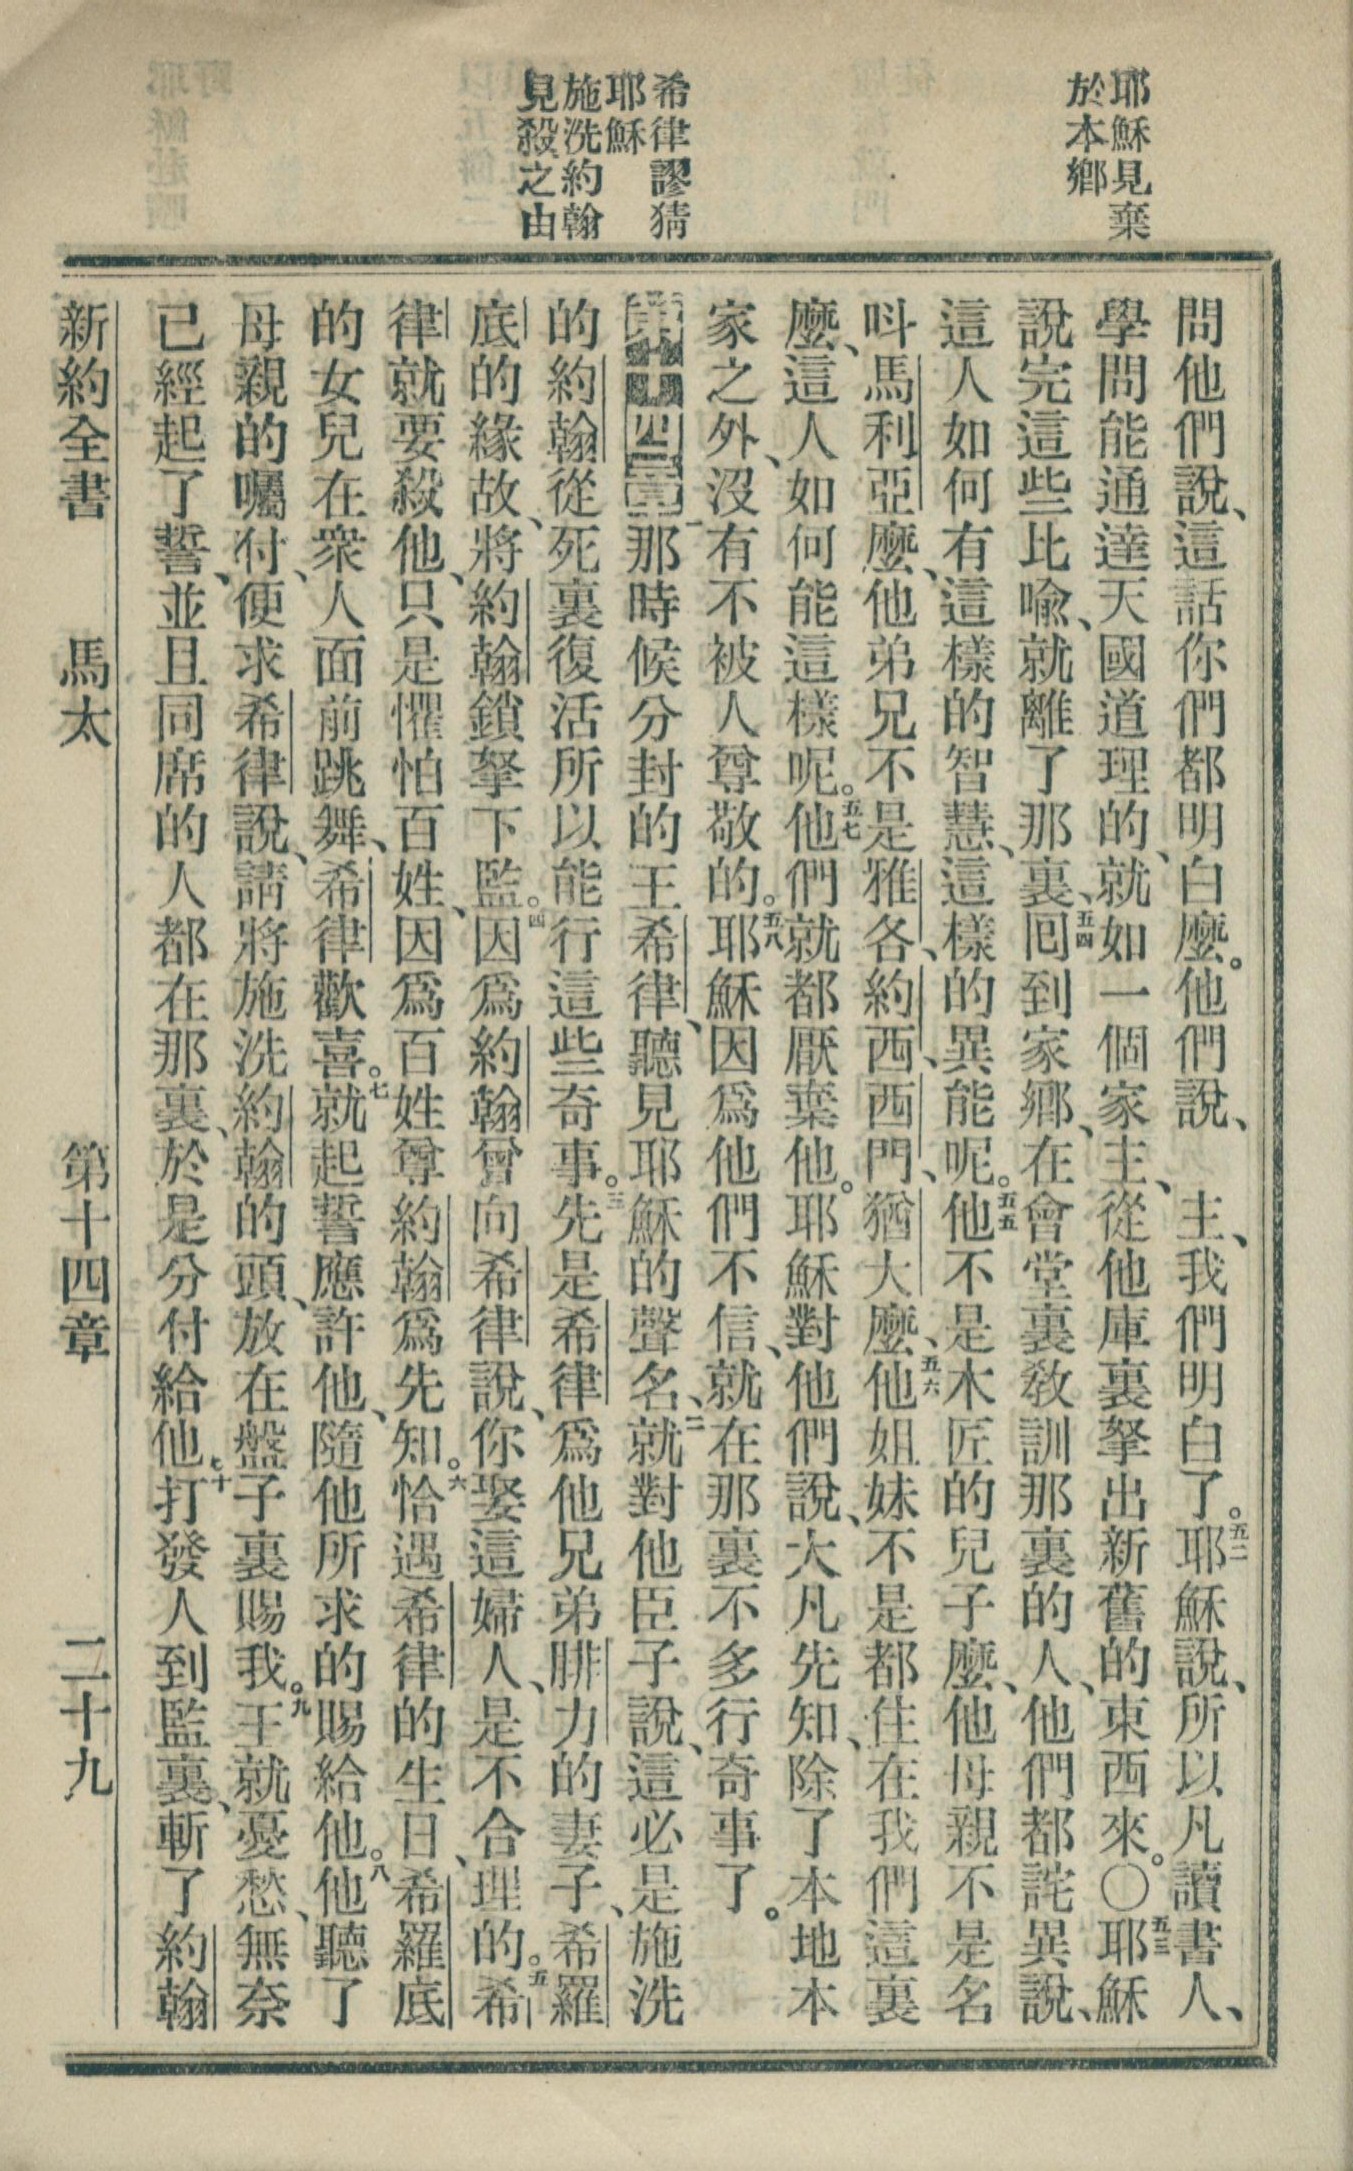 耶穌見棄
於本鄉
希律謬猜
耶穌
施洗約翰
見殺之由
問他們說、這話你們都明白麼。他們說、主、我們明白了。五二耶穌說、所以凡讀書人、
學問能通達天國道理的、就如一個家主、從他庫裏拏出新舊的東西來。〇五三耶穌
說完這些比喻、就離了那裏、五四囘到家鄉、在會堂裏敎訓那裏的人、他們都詫異說、
這人如何有這樣的智慧、這樣的異能呢。五五他不是木匠的兒子麼、他母親不是名
呌馬利亞麼、他弟兄不是雅各、約西、西門、猶大麼、五六他姐妹不是都住在我們這裏
麼、這人如何能這樣呢。五七他們就都厭棄他。耶穌對他們說、大凡先知、除了本地本
家之外、沒有不被人尊敬的。五八耶穌因爲他們不信、就在那裏不多行奇事了。
第十四章 一那時候分封的王希律、聽見耶穌的聲名、二就對他臣子說、這必是施洗
的約翰從死裏復活所以能行這些奇事。三先是希律爲他兄弟腓力的妻子、希羅
底的緣故、將約翰鎖拏下監。四因爲約翰曾向希律說、你娶這婦人、是不合理的。五希
律就要殺他、只是懼怕百姓、因爲百姓尊約翰爲先知。六恰遇希律的生日、希羅底
的女兒在衆人面前跳舞、希律歡喜。七就起誓應許他、隨他所求的賜給他。八他聽了
母親的囑付、便求希律說、請將施洗約翰的頭、放在盤子裏賜我。九王就憂愁、無奈
已經起了誓、並且同席的人都在那裏、於是分付給他、十打發人到監裏、斬了約翰
新約全書 馬太 第十四章 二十九